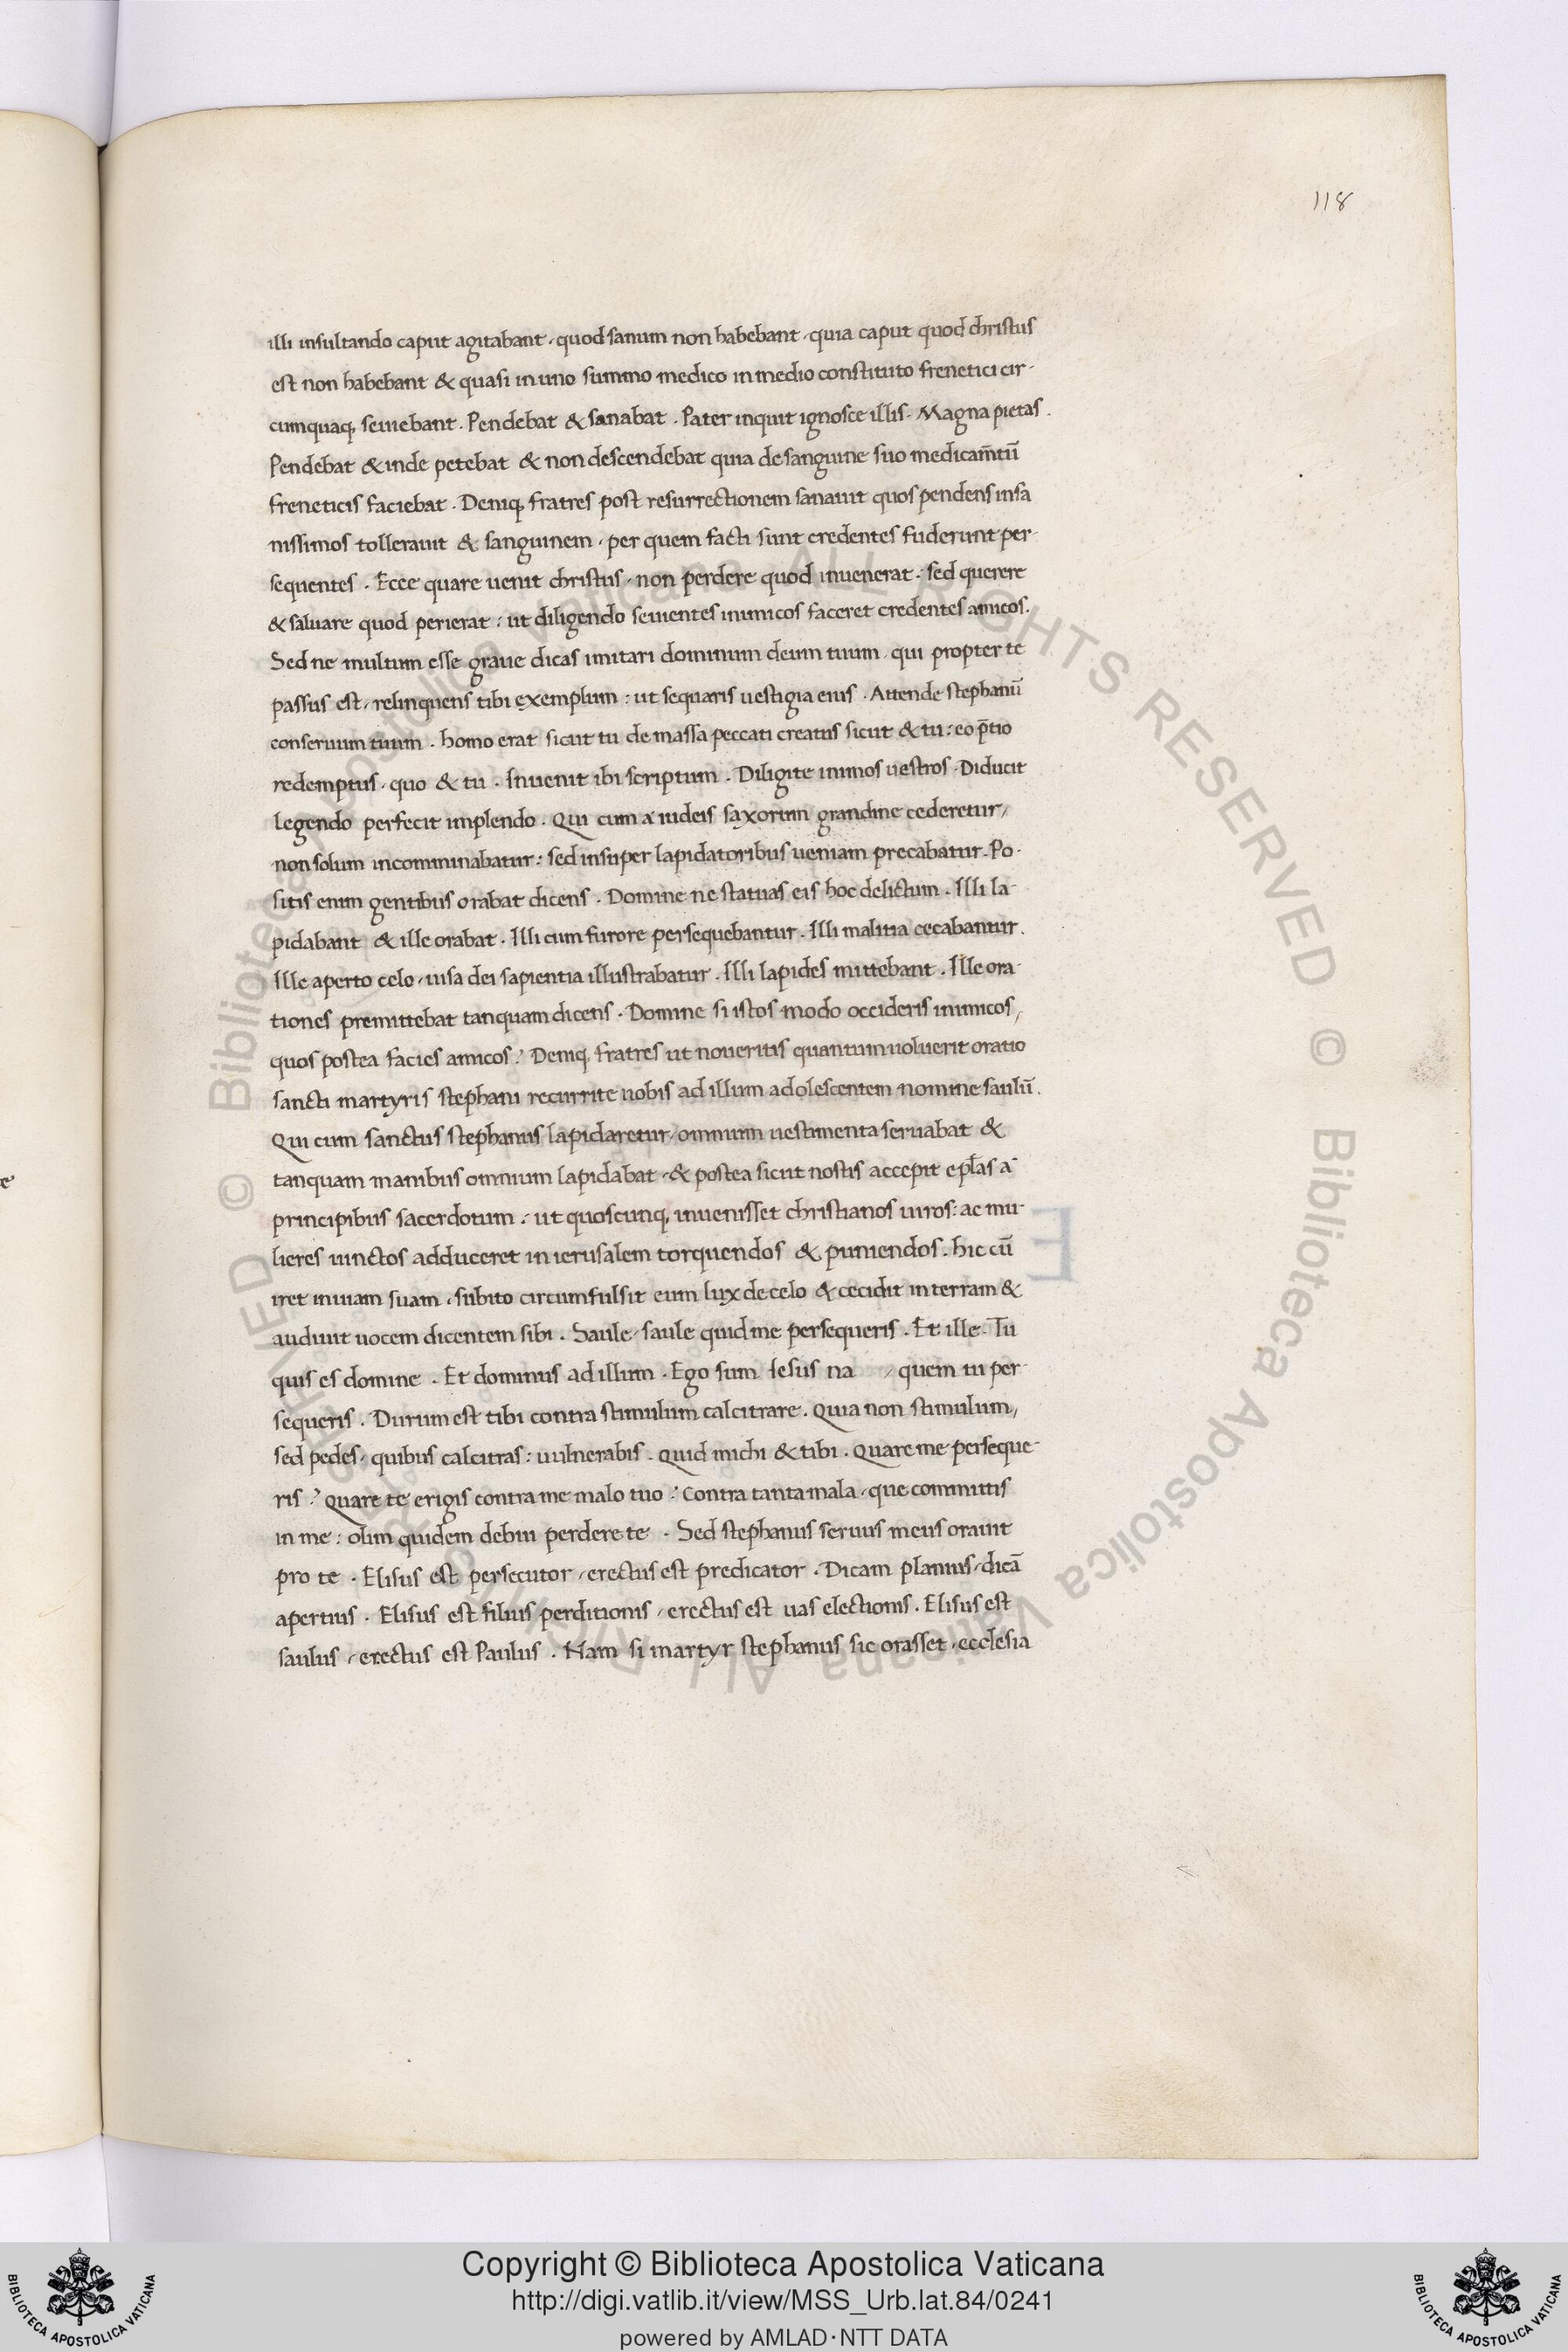 118
illi insultando caput agitabant, quod sanum non habebant, quia caput quod christus
est non habebant & quasi in uno summo medico in medio constituto frenetici cir-
cumquaq, seuiebant. Pendebat & sanabat. Pater inquit ignosce illis. Magna pietas.
Pendebat & inde petebat & non descendebat quia de sanguine suo medicam̄tū
freneticis faciebat. Deniq, fratres post resurrectionem sanauit quos pendens insa
nissimos tollerauit & sanguinem, per quem facti sunt credentes fuderunt per-
sequentes. Ecce quare uenit christus, non perdere quod inuenerat: sed querere
& saluare quod perierat: ut diligendo seuientes inimicos faceret credentes amicos.
Sed ne multum esse graue dicas imitari dominum deum tuum, qui propter te
passus est, relinquens tibi exemplum: ut sequaris uestigia eius. Attende stephanū
conseruum tuum. homo erat sicut tu de massa peccati creatus sicut & tu: eo p̄tio
redemptus, quo & tu. Inuenit ibi scriptum. Diligite inimos uestros. Didicit
legendo perfecit implendo. Qui cum a iudeis saxorum grandine cederetur,
non solum incomminabatur: sed insuper lapidatoribus ueniam precabatur. Po-
sitis enim gentibus orabat dicens. Domine ne statuas eis hoc delictum. Illi la-
pidabant & ille orabat. Illi cum furore persequebantur. Illi malitia cecabantur.
Ille aperto celo, uisa dei sapientia illustrabatur. Illi lapides mittebant. Ille ora-
tiones premittebat tanquam dicens. Domine si istos modo occideris inimicos,
quos postea facies amicos? Deniq, fratres ut noueritis quantum uoluerit oratio
sancti martyris stephani recurrite nobis ad illum adolescentem nomine saulū.
Qui cum sanctus stephanus lapidaretur, omnium uestimenta seruabat &
tanquam manibus omnium lapidabat, & postea sicut nostis accepit epl̄as a
principibus sacerdotum: ut quoscunq, inuenisset christianos uiros: ac mu-
lieres uinctos adduceret in ierusalem torquendos & puniendos. hic cū
iret in uiam suam, subito circumfulsit eum lux de celo & cecidit in terram &
audiuit uocem dicentem sibi. Saule, saule quid me persequeris. Et ille. Tu
quis es domine. Et dominus ad illum. Ego sum Iesus na , quem tu per-
sequeris. Durum est tibi contra stimulum calcitrare. Quia non stimulum,
sed pedes, quibus calcitras: uulnerabis. Quid michi & tibi. Quare me perseque-
ris? Quare te erigis contra me malo tuo? Contra tanta mala, que committis
in me: olim quidem debui perdere te. Sed stephanus seruus meus orauit
pro te. Elisus est persecutor, erectus est predicator. Dicam planius, dicā
apertius. Elisus est filius perditionis, erectus est uas electionis. Elisus est
saulus, erectus est Paulus. Nam si martyr stephanus sic orasset, ecclesia
© Biblioteca Apostolica Vaticana ALL RIGHTS RESERVED © Biblioteca Apostolica Vaticana ALL RIGHTS RESERVED
Copyright © Biblioteca Apostolica Vaticana
http://digi.vatlib.it/view/MSS_Urb.lat.84/0241
powered by AMLAD·NTT DATA
BIBLIOTECA APOSTOLICA VATICANA
BIBLIOTECA APOSTOLICA VATICANA